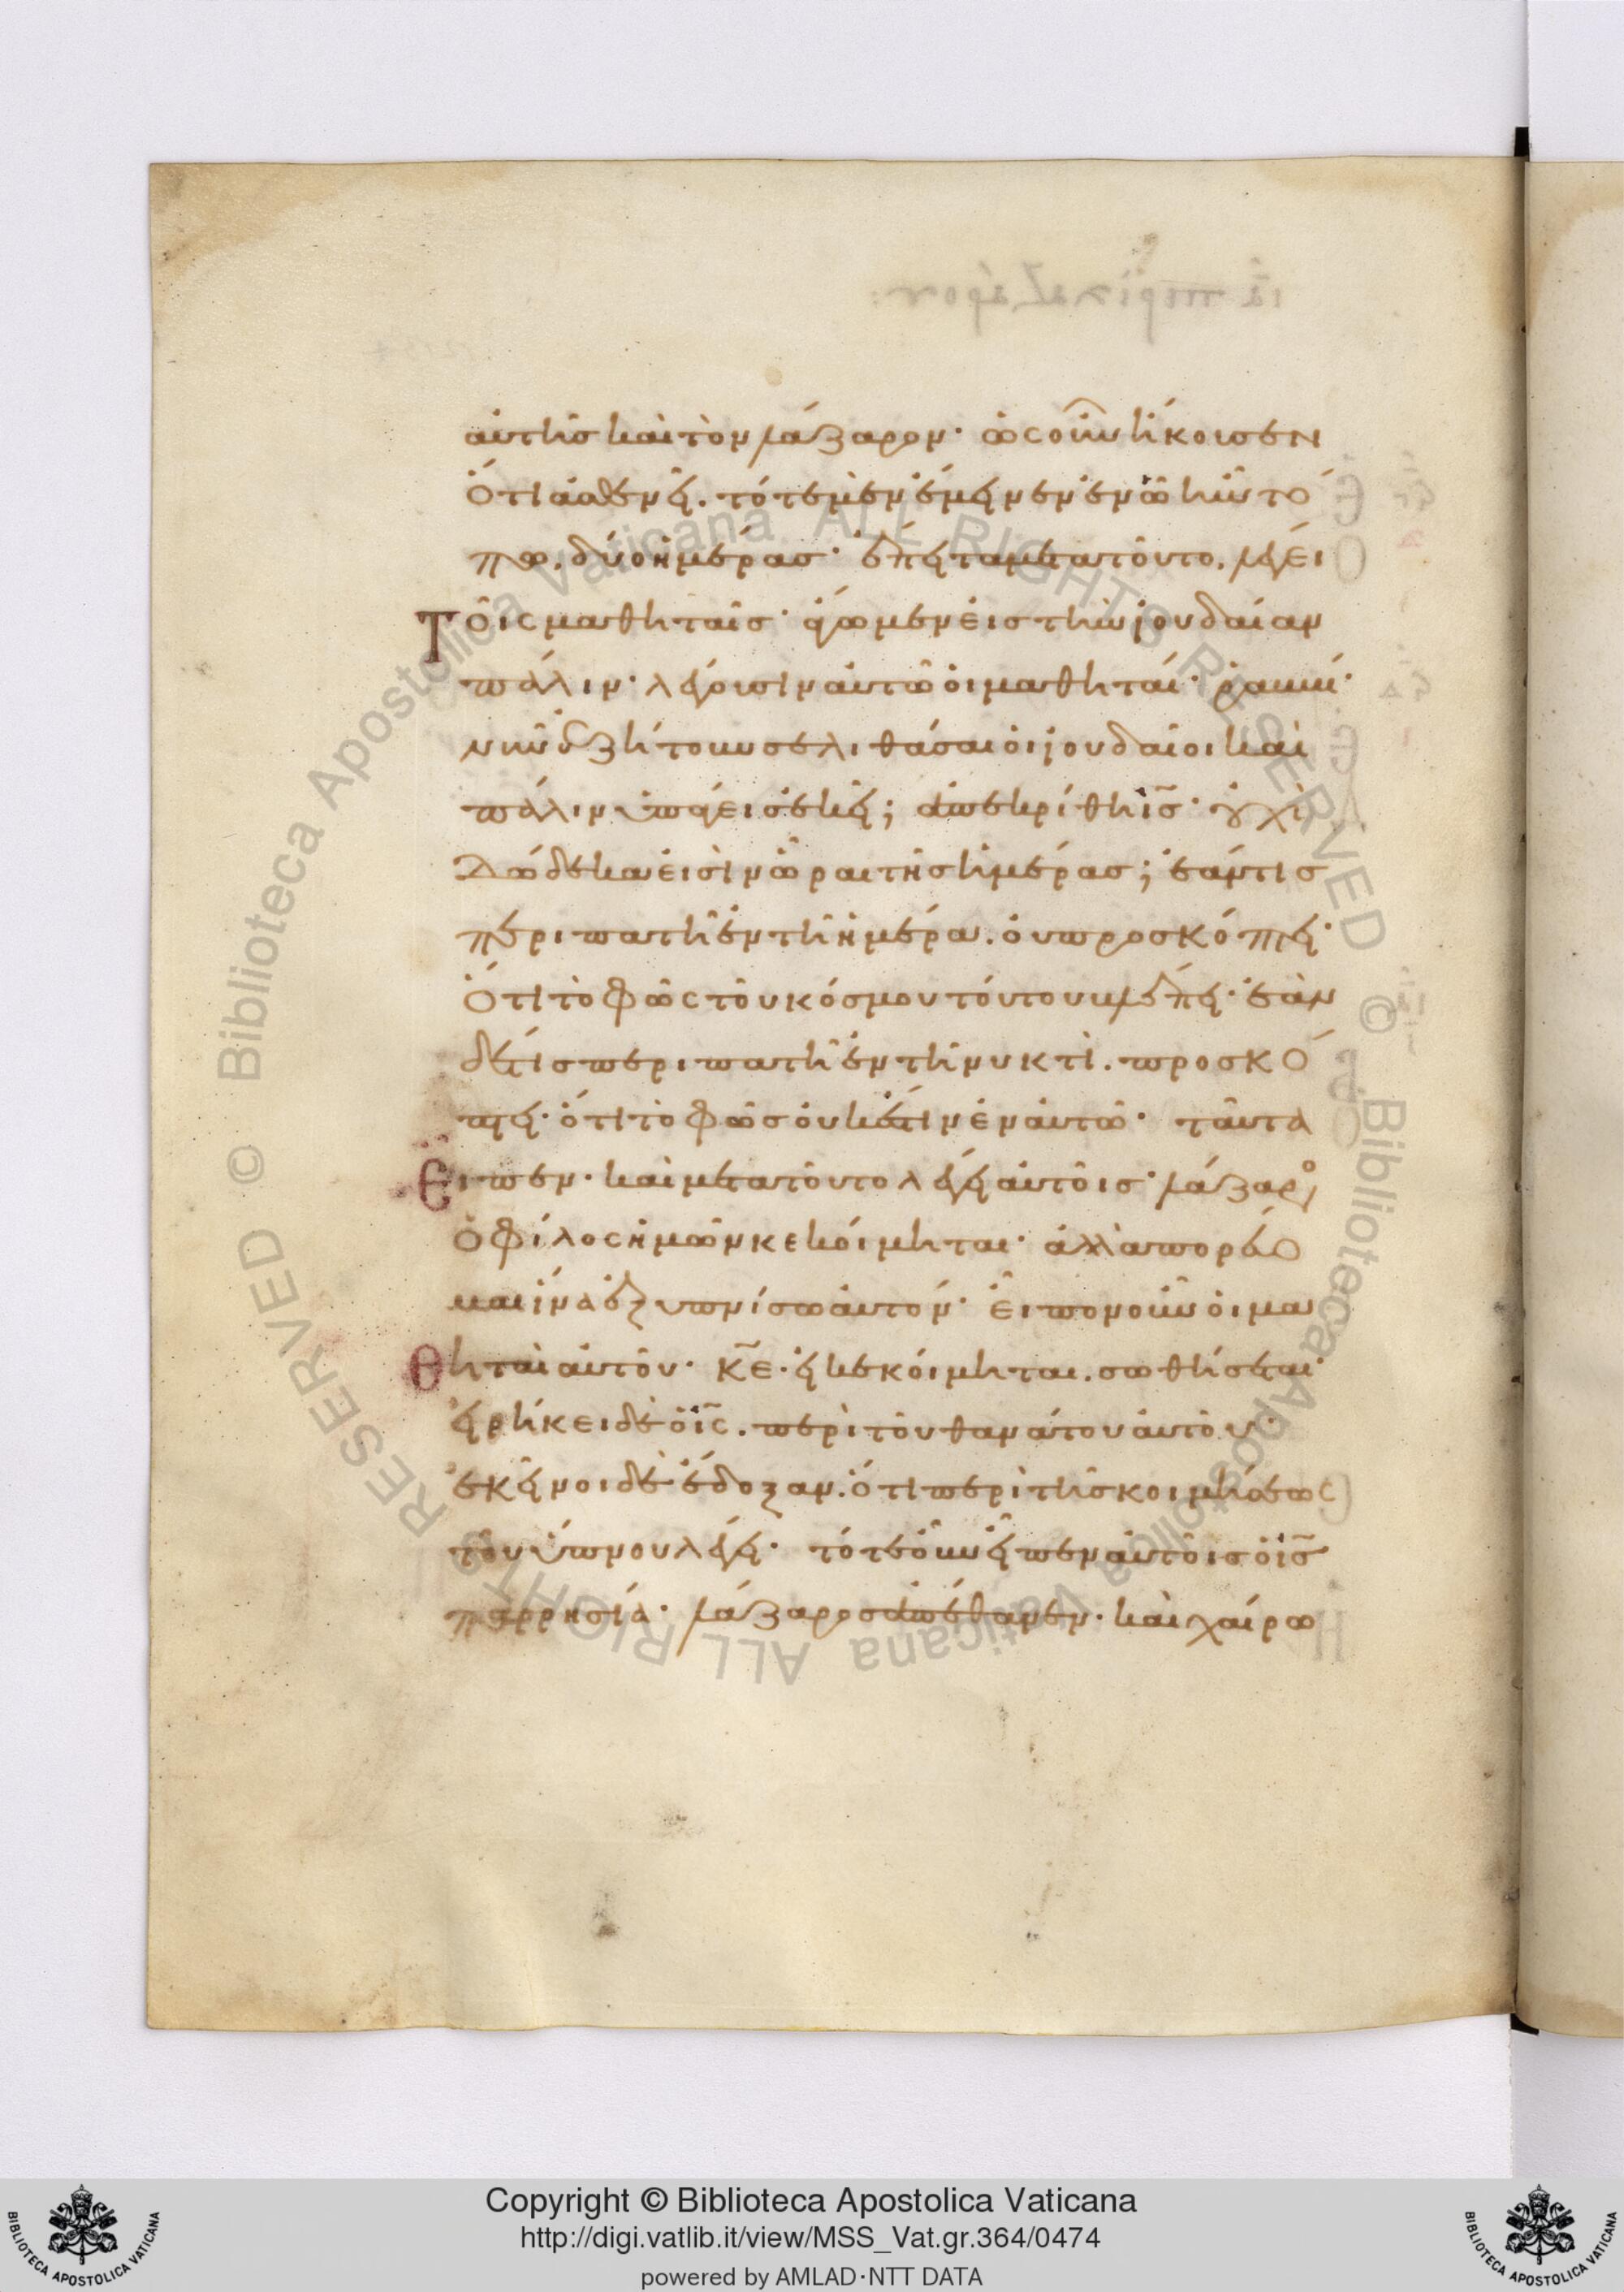 αὐτῆς καὶ τὸν λάζαρον· ὡς οὖν ἤκουσεν
ὅτι ἀσθενεῖ. τότε μὲν ἔμεινεν ἐν ᾧ ἦν τό
πω. δύο ἡμέρας· ἔπειτα μετὰ τοῦτο. λέγει
Τοῖς μαθηταῖς· ἄγωμεν εἰς τὴν ἰουδαίαν
πάλιν· λέγουσιν αὐτῶ οἱ μαθηταί· ῥαββί·
νῦν ἐζήτουν σε λιθάσαι οἱ ἰουδαῖοι καὶ
πάλιν ὑπάγεις ἐκεῖ; ἀπεκρίθη ἰς· οὐχὶ
δώδεκα εἰσὶν ὧραι τῆς ἡμέρας; ἐάν τις
περιπατῆ ἐν τῆ ἡμέρα. οὐ προσκόπτει·
ὅτι τὸ φῶς τοῦ κόσμου τούτου βλέπει· ἐὰν
δέ τις περιπατῆ ἐν τῆ νυκτὶ. προσκό
πτει· ὅτι τὸ φῶς οὐκ ἔστιν ἐν αὐτῶ· ταῦτα
Εἶπεν· καὶ μετὰ τοῦτο λέγει αὐτοῖς· λάζαρος
ὁ φίλος ἡμῶν κεκοίμηται· ἀλλὰ πορεύο
μαι ἵνα ἐξυπνίσω αὐτόν· εἶπον οὖν οἱ μα
Θηταὶ αὐτοῦ· κε· εἰ κεκοίμηται. σωθήσεται·
εἰρήκει δὲ ὁ ις. περὶ τοῦ θανάτου αὐτοῦ·
ἐκεῖνοι δὲ ἔδοξαν· ὅτι περὶ τῆς κοιμήσεως
τοῦ ὕπνου λέγει· τότε οὖν εἶπεν αὐτοῖς ὁ ις
παρρησία· λάζαρος ἀπέθανεν· καὶ χαίρω
Copyright © Biblioteca Apostolica Vaticana
http://digi.vatlib.it/view/MSS_Vat.gr.364/0474
powered by AMLAD·NTT DATA
BIBLIOTECA APOSTOLICA VATICANA
BIBLIOTECA APOSTOLICA VATICANA
© Biblioteca Apostolica Vaticana ALL RIGHTS RESERVED
© Biblioteca Apostolica Vaticana ALL RIGHTS RESERVED